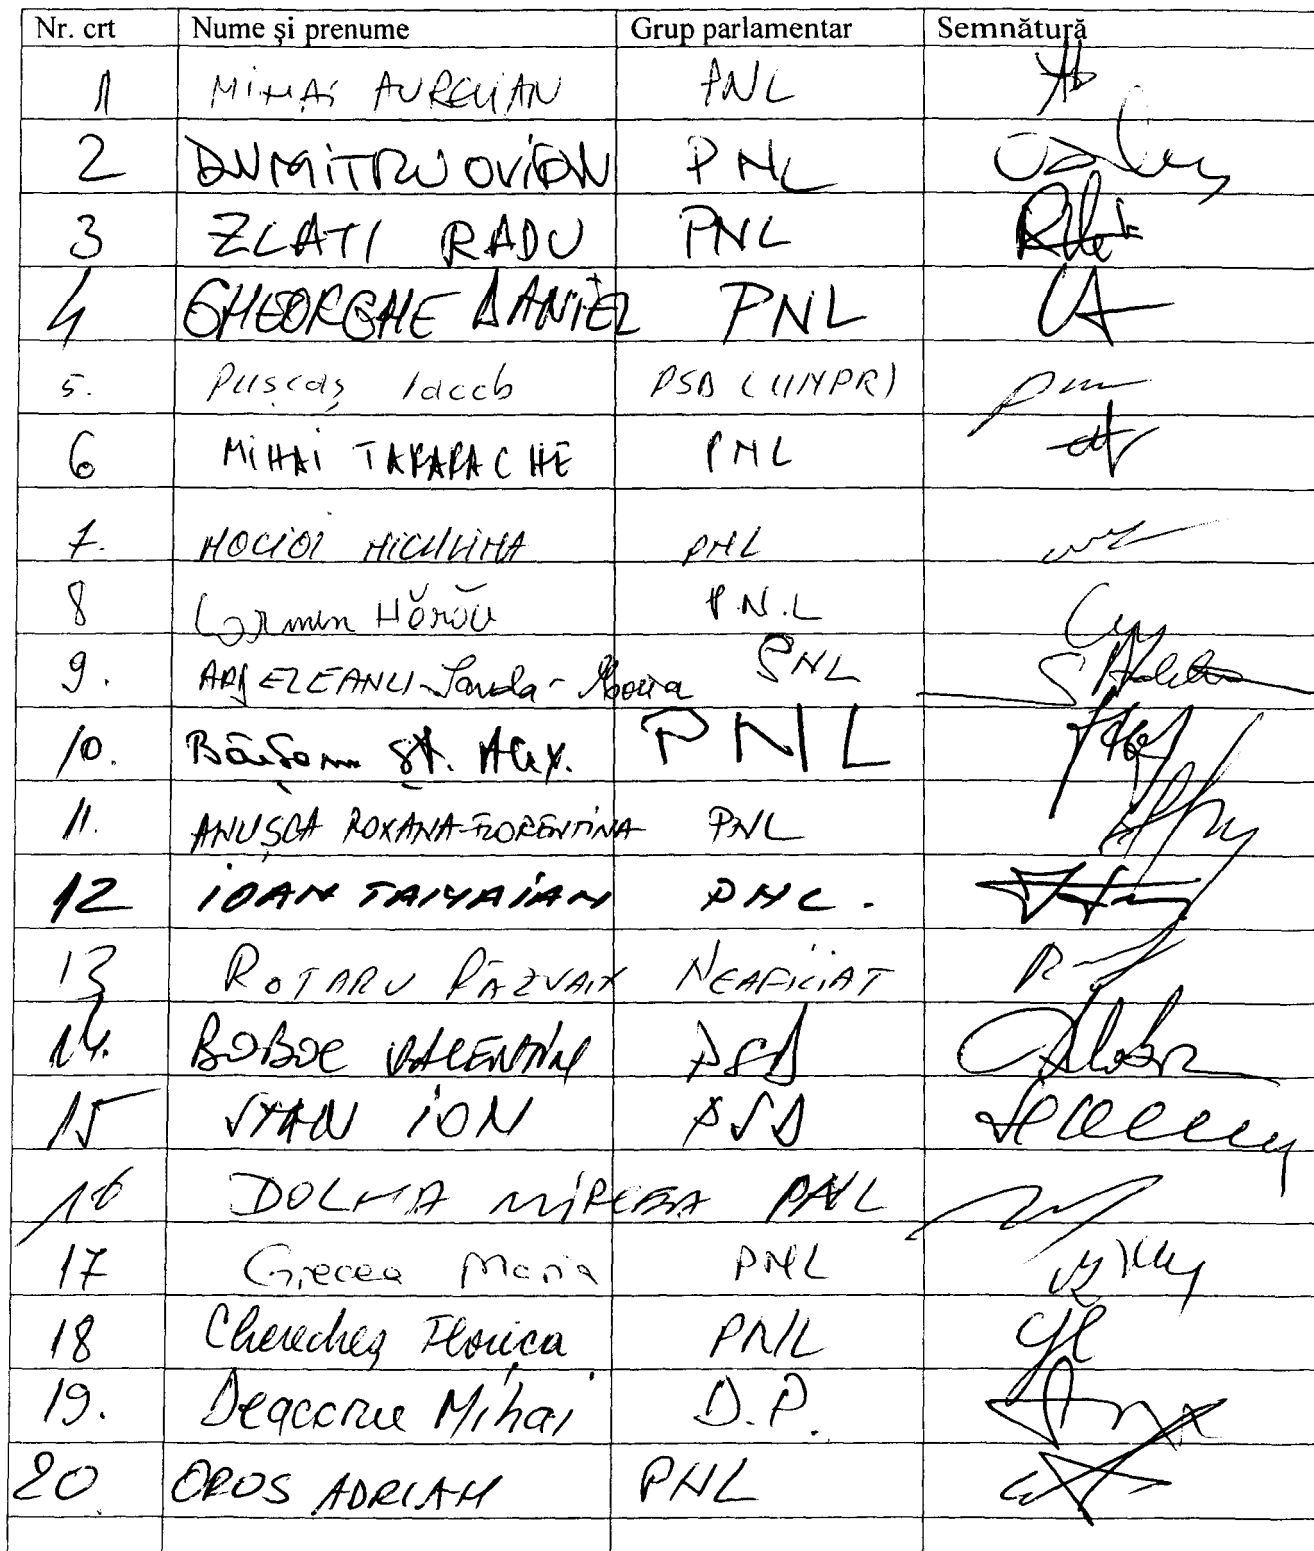 Nr. crt Nume și prenume Grup parlamentar Semnătură
1 MIHAI AURELIAN PNL
2 DUMITRU OVIDIU PNL
3 ZLATI RADU PNL
4 GHEORGHE DANIEL PNL
5. Pușcaș Iacob PSD (UNPR)
6 MIHAI TARARACHE PNL
7. MOCIOI NICULINA PNL
8 Cormen Hărău PN.L
9. ARGEZEANU PNL
10. St. Alex. PNL
11. ANUȘCA ROXANA-FLORENTINA PNL
12 IOAN PNL.
13 ROTARU RĂZVAN NEAFILIAT
14. BOBOC VALENTIN PSD
15 STAN ION PSD
16 DOLHA MIRCEA PNL
17 Grecea Maria PNL
18 Cherecheș Florica PNL
19. Mihai D.P.
20 OROS ADRIAN PNL